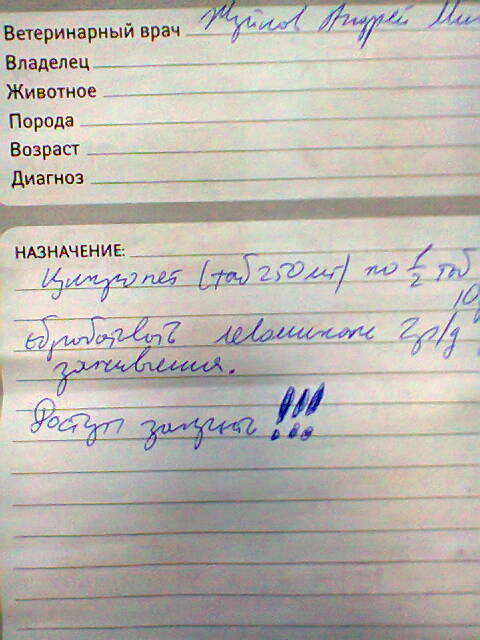 Ветеринарный врач Жуйлов Андрей Ми
Владелец
Животное
Порода
Возраст
Диагноз
НАЗНАЧЕНИЕ:
Ципропет (таб 250 мг) по 1/2 таб
10
обработывать левомиколь 2 р/д
заживления.
Доступ закрыть !!!